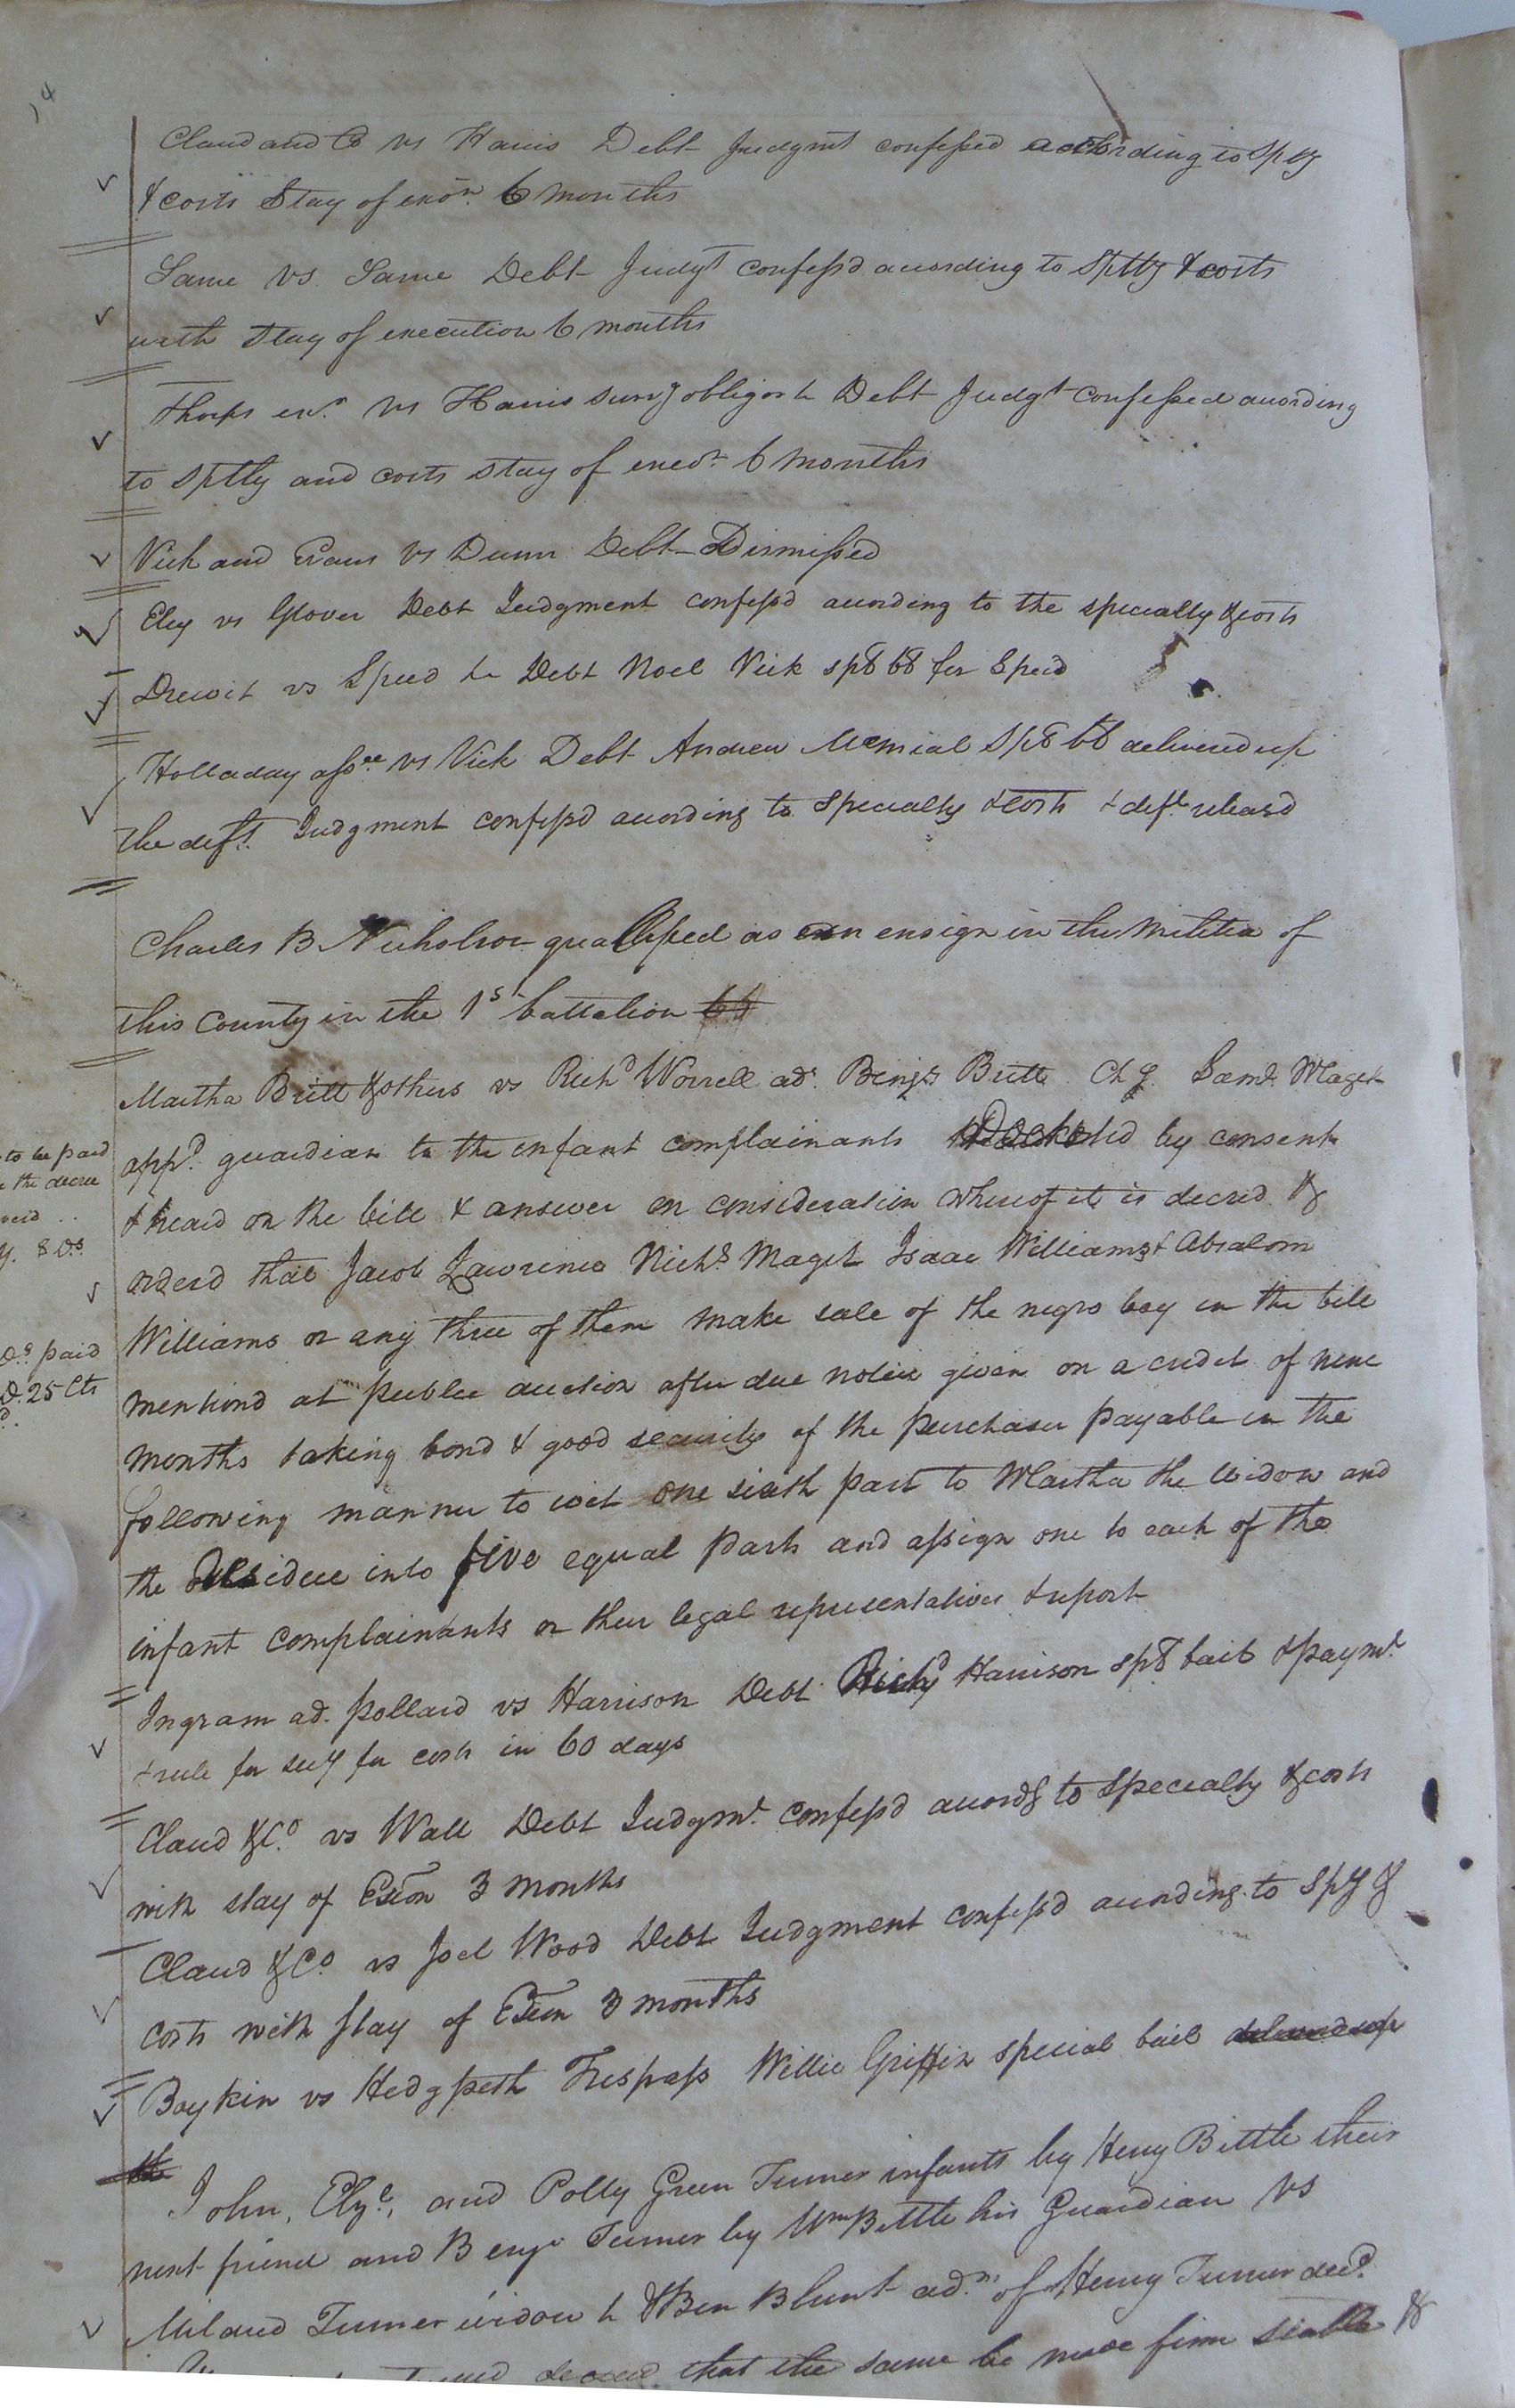 14
Claud and Co vs Harris Debt Judgmt confessed according to Spty
& costs Stay of exon. 6 months
Same vs. Same Debt Judgt confess'd according to Sptty & costs
with Stay of execution 6 months
Thorps exr. vs Harris surg obligor &c Debt Judgt confessed according
to sptty and costs stay of exeon. 6 months
Vick and Evans vs Dunn Debt Dismissed
Eley vs Glover Debt Judgment confessd according to the specialty & costs
Drewit vs Speed &c Debt Noel Vick spl bl for Speed
Holladay assee vs Vick Debt Andrew spl bl deliverd up
the deft. Judgment confessd according to Specialty & costs & deft. releasd
Charles B Nicholson qualified as an ensign in the Militia of
this County in the 1st battalion
Martha Britt & others vs Richd Worrell adr. Benjn. Britt Chy. Saml. Maget
appd. guardian to the infant complainants Docketed by consent
& heard on the bill & answer on consideration whereof it is decred &
orderd that Jacob Lawrence Nichs Maget Isaac Williams & Absalom
Williams or any three of them make sale of the negro boy in the bill
mentiond at public auction after due notice given on a credit of nine
months taking bond & good security of the purchaser payable in the
following manner to wit one sixth part to Martha the widow and
the residue into five equal parts and assign one to each of the
infant complainants or their legal representatives & report
to be paid
the decree
Ds. paid
D. 25 Cts
Ingram ad. Pollard vs Harrison Debt Richd Harrison spl bail & paymt.
& rule for secy for costs in 60 days
Claud & Co. vs Wall Debt Judgmt. confessd accordg to Specialty & costs
with stay of Exon 3 months
Claud & Co. vs Joel Wood Debt Judgment confessd according to Spy &
costs with stay of Exon 3 months
Boykin vs Hedgpeth Trespass Willie Griffin special bail deliverd up
the
John, and Polly Green Turner infants by Henry Bittle their
next friend and Benja Turner by Wm Bittle his Guardian vs
Turner widow & Ben Blunt adm. of Henry Turner decd.
that the same be made firm stable &